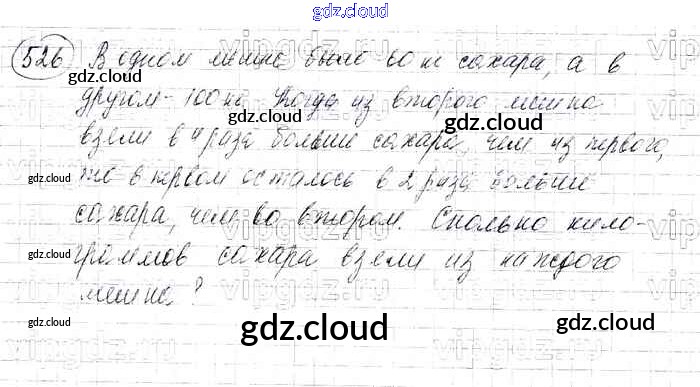 gdz.cloud
526 В одном мешке было 60 кг сахара, а в
другом - 100 кг. Когда из второго мешка
взяли в 4 раза больше сахара, чем из первого,
то в первом осталось в 2 раза больше
сахара, чем во втором. Сколько кило-
граммов сахара взяли из каждого
мешка?
gdz.cloud
gdz.cloud
gdz.cloud
gdz.cloud
gdz.cloud
gdz.cloud
gdz.cloud
gdz.cloud
gdz.cloud
gdz.cloud
vipgdz.ru